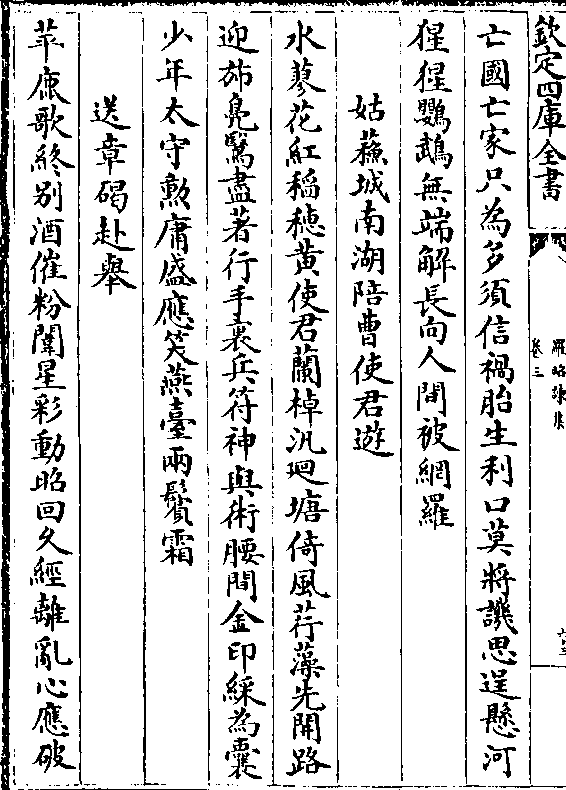 欽定四庫全書
羅昭諫集
卷三
亡國亡家只為多須信禍胎生利口莫將譏思逞懸河
猩猩鸚鵡無端解長向人間被網羅
姑蘇城南湖陪曹使君遊
水蓼花紅稻穗黃使君蘭棹汎廻塘倚風荇藻先開路
迎斾鳧鷖盡著行手裏兵符神與術腰間金印綵為囊
少年太守勲庸盛應笑燕臺兩鬢霜
送章碣赴舉
苹鹿歌終别酒催粉闈星彩動昭回久經離亂心應破